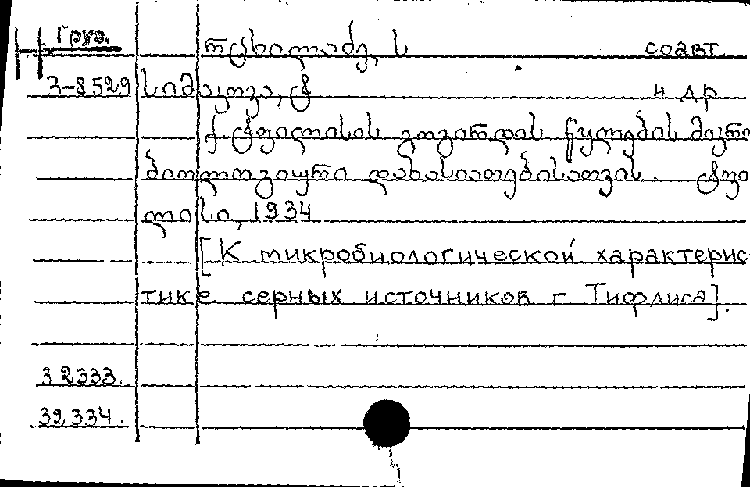 Груз.
соавт.
3-8529 и др
ქ. ტფილისის გოგირდის წყლების მიკრო
ბიოლოგიური დახასიათებისათვის. ტფი
ლისი, 1934
[К микробиологической характерис
тике серных источников г Тифлиса].
32333.
39334.